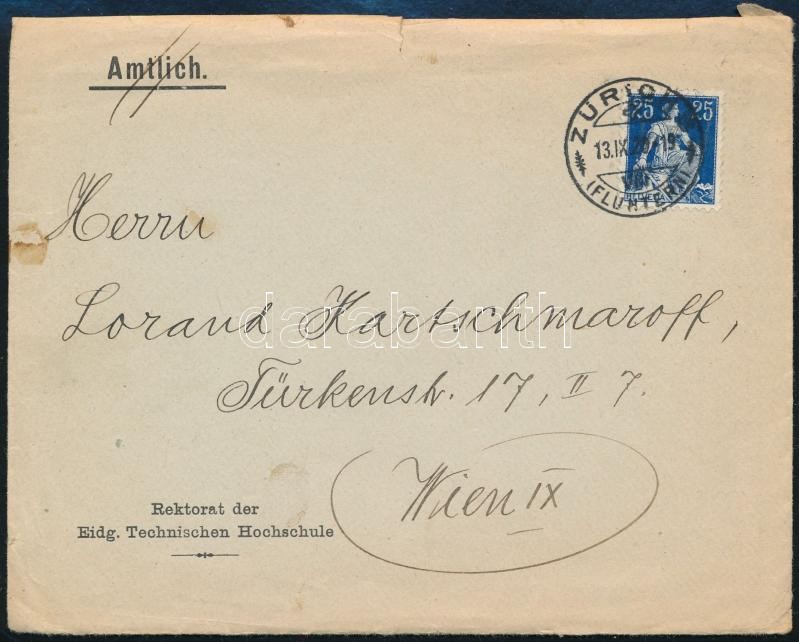 Amtlich.
25 25
ZÜRICH
13.IX.20.-19
VIII
(FLUNTERN)
HELVETIA
Herrn
Lorand Kartschmaroff,
Türkenstr. 17, II 7.
Wien IX
Rektorat der
Eidg. Technischen Hochschule
darabanth